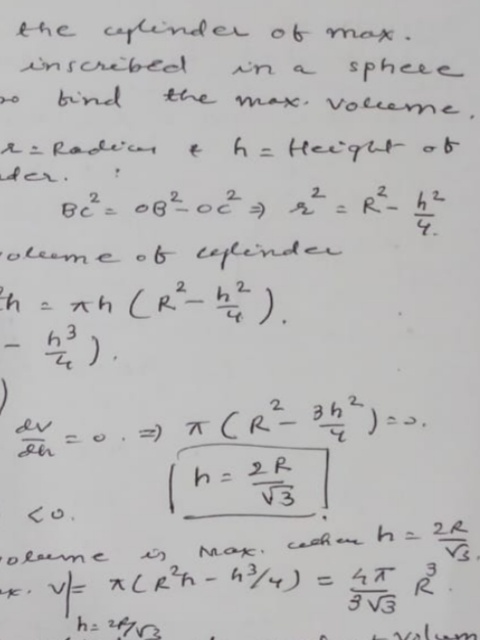 the cylinder of max.
inscribed in a sphere
find the max. volume.
r = Radius & h = Height of
der. :
BC² = OB² - OC² ⇒ r² = R² - h²/4.
olume of cylinder
²h = πh (R² - h²/4).
- h³/4).
)
dv/dh = 0. ⇒ π(R² - 3h²/4) = 0.
h = 2R/√3
< 0.
olume is max. when h = 2R/√3.
x. V| = π(R²h - h³/4) = 4π/3√3 R³.
h = 2R/√3
volum